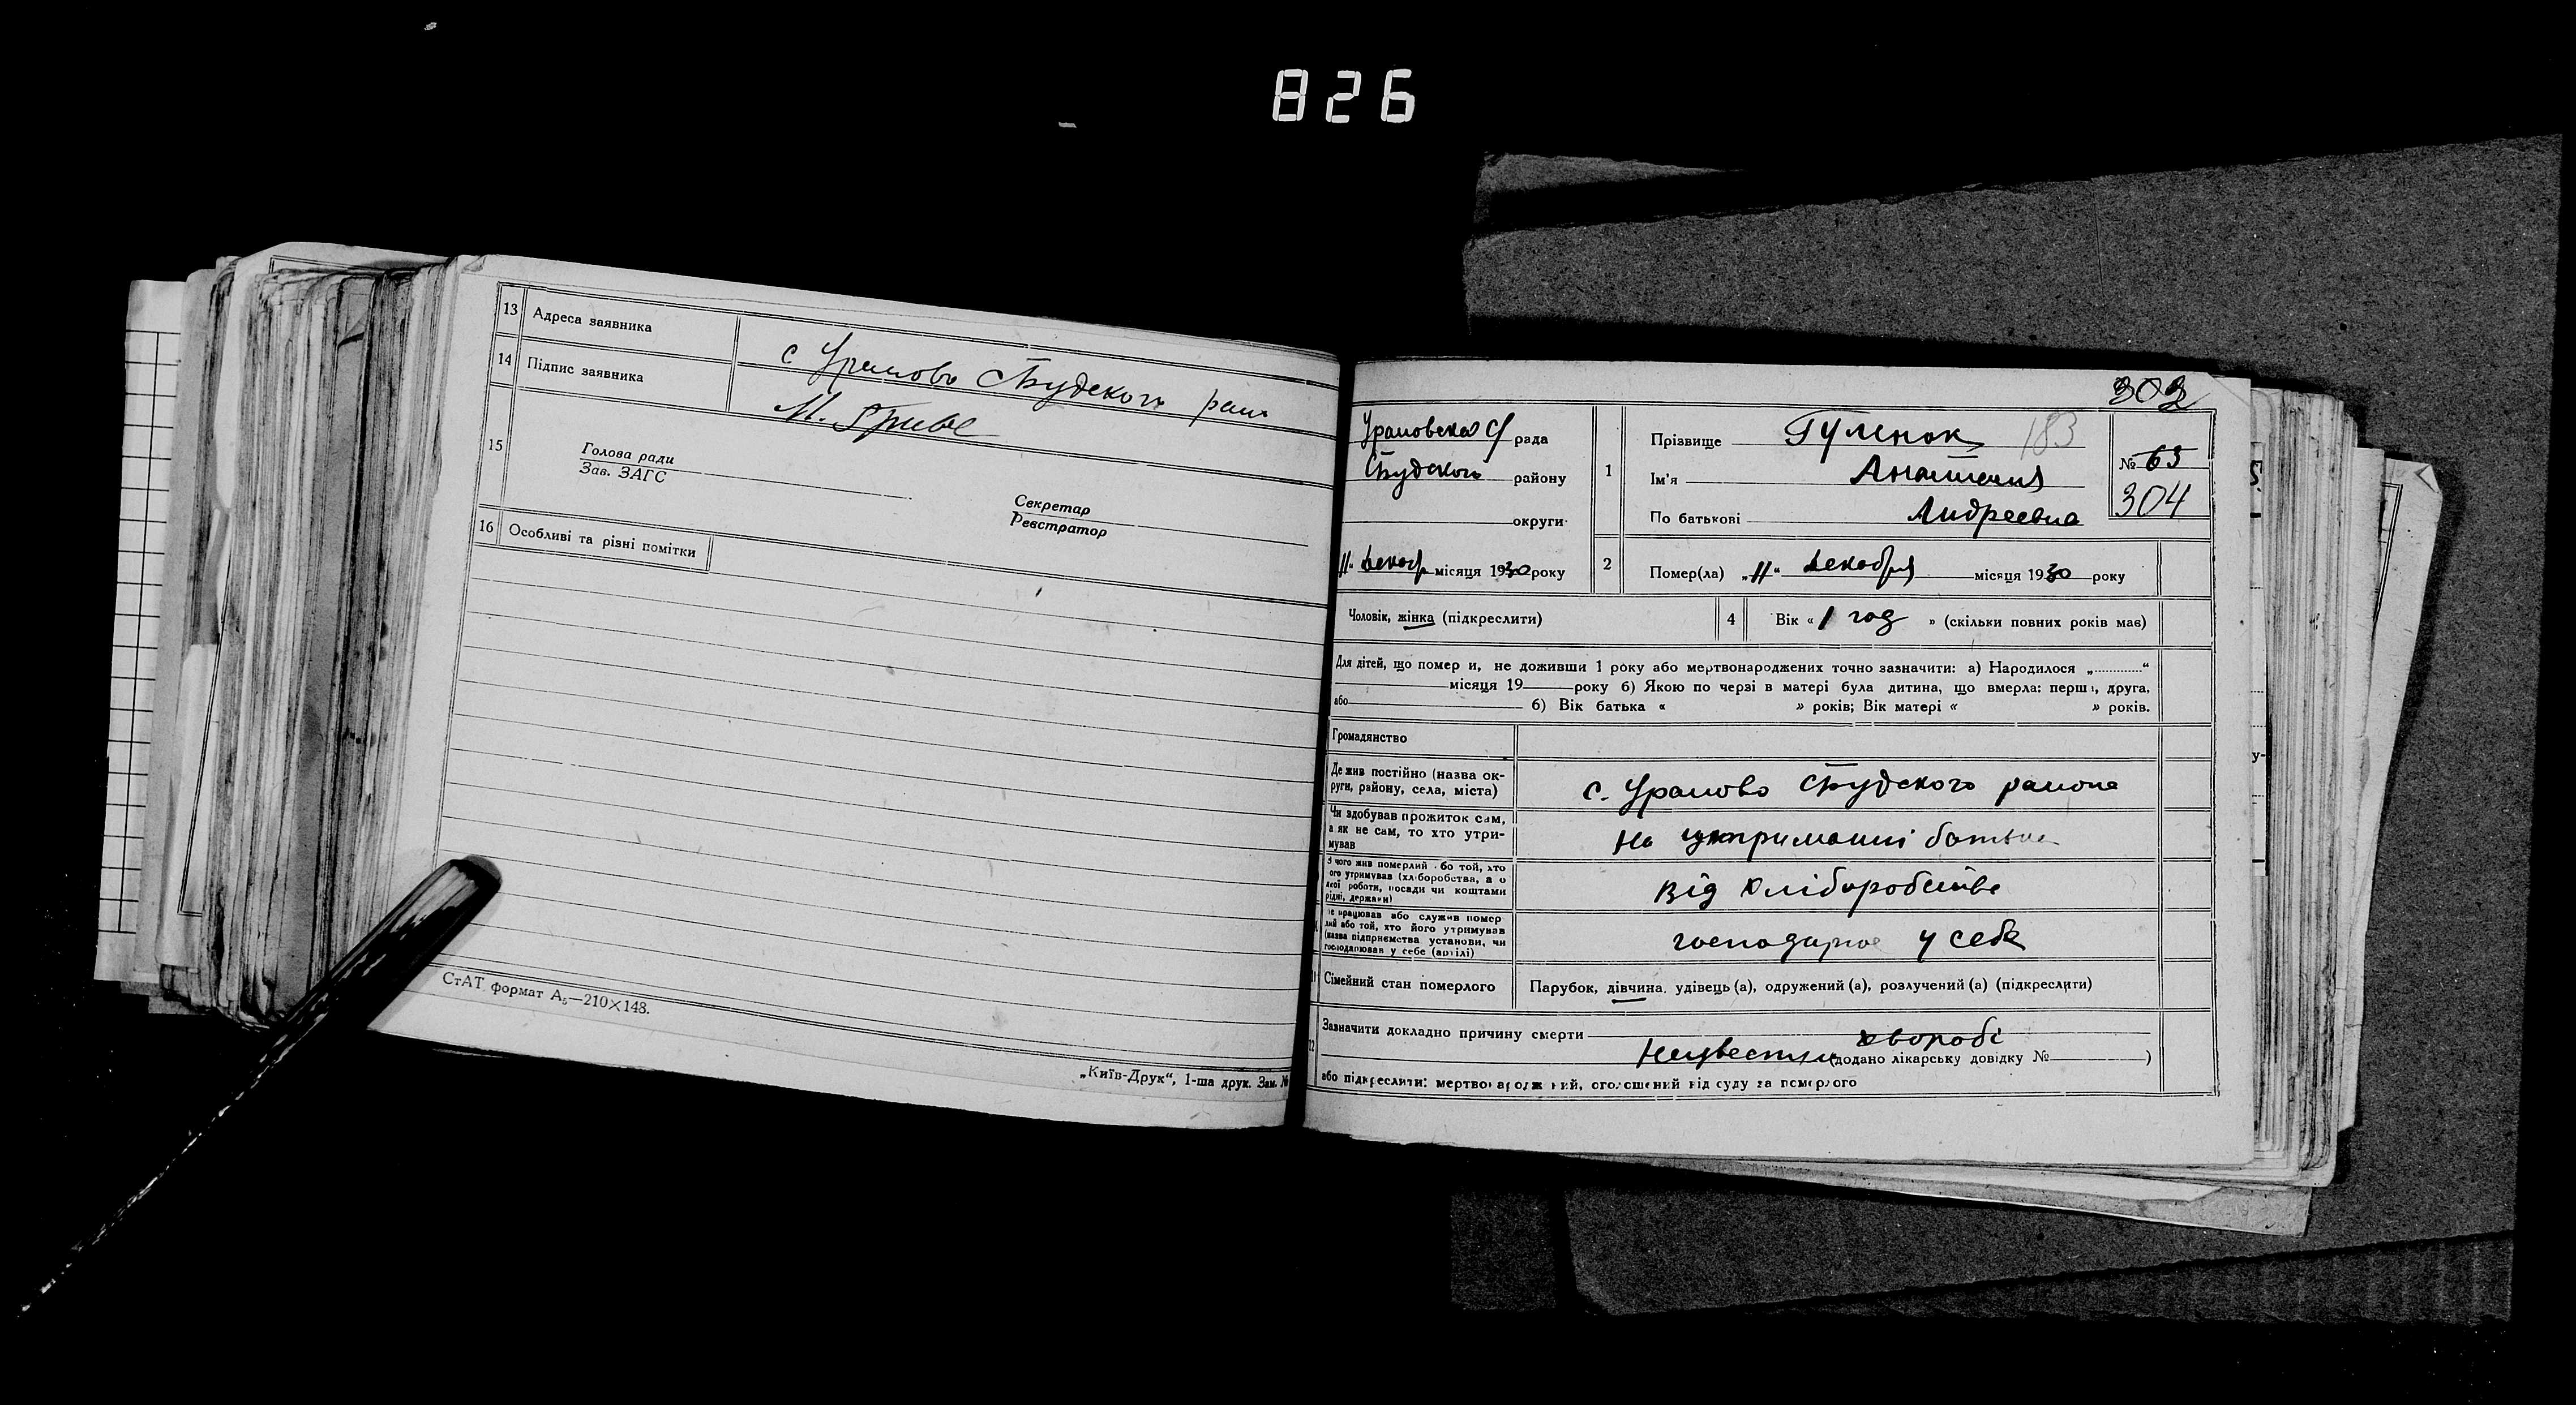 826
13 Адреса заявника с Ураново Стбудского рай
14 Підпис заявника
15 Голова ради
Зав. ЗАГС
Секретар
Реєстратор
16 Особливі та різні помітки
СтАТ формат А₅—210×148.
„Київ-Друк“, 1-ша друк. Зам. №
303
рада
району
округи
11 декабр місяця 1930 року
1 Прізвище Гуленок 183
Ім'я Анастасия
По батькові Андреевна
№ 63
304
2 Помер(ла) „11“ декабря місяця 1930 року
Чоловік, жінка (підкреслити)
4 Вік « 1 год » (скільки повних років має)
Для дітей, що померли, не доживши 1 року або мертвонароджених точно зазначити: а) Народилося „ “
місяця 19 року б) Якою по черзі в матері була дитина, що вмерла: перша, друга,
або 6) Вік батька « » років; Вік матері « » років.
Громадянство
Де жив постійно (назва ок-
руги, району, села, міста)
с. Ураново района
Чи здобував прожиток сам,
а як не сам, то хто утри-
мував
На утриманні батька
З чого жив померлий або той, хто
його утримував (хліборобства, а о
якої роботи, посади чи коштами
рідні, держави)
Від хліборобства
Де працював або служив помер
лий або той, хто його утримував
(назва підприємства установи, чи
господарював у себе (артілі)
господарює у себе
Сімейний стан померлого
Парубок, дівчина, удівець (а), одружений (а), розлучений (а) (підкреслити)
12 Зазначити докладно причину смерти хворобі
(додано лікарську довідку № )
або підкреслити: мертвонароджений, оголошений від суду за померлого